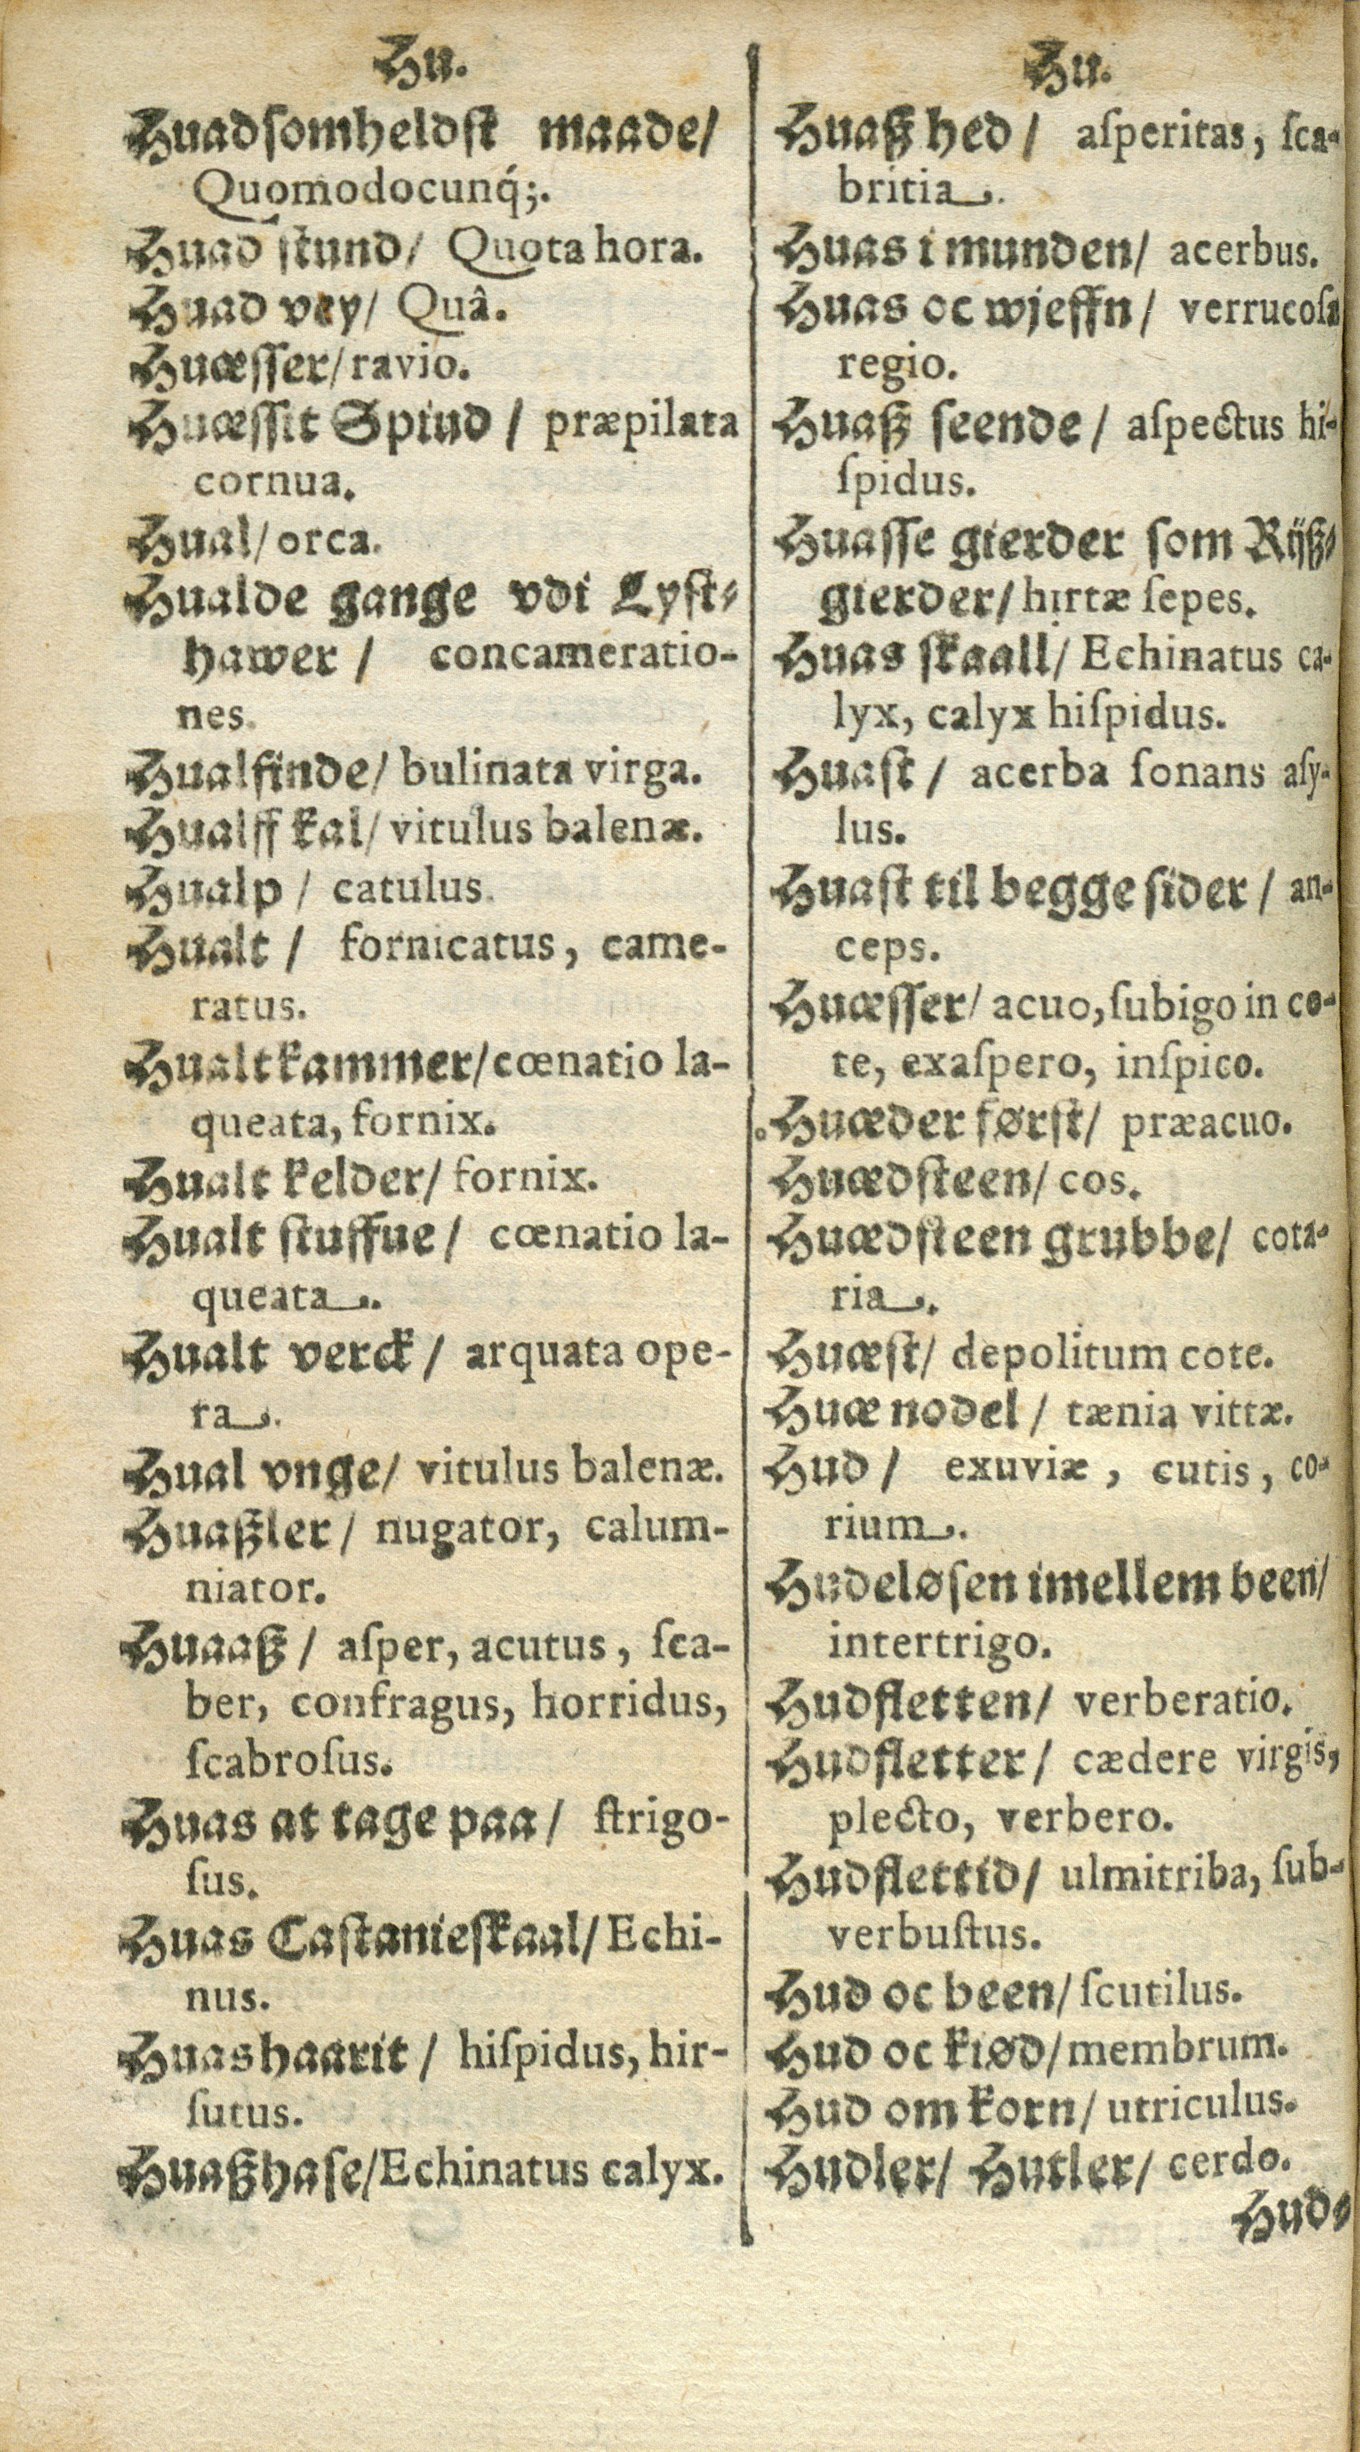 Hu.
Huadſomheldſt maade/
Quomodocunq́;.
Huad ſtund/ Quota hora.
Huad vey/ Quâ.
Huæſſer/ravio.
Huæſſit Spiud / præpilata
cornua.
Hual/orca.
Hualde gange vdi Lyſt-
hawer / concameratio-
nes.
Hualfinde/ bulinata virga.
Hualff kal/ vitulus balenæ.
Hualp / catulus.
Hualt / fornicatus, came-
ratus.
Hualtkammer/cœnatio la-
queata, fornix.
Hualt kelder/ fornix.
Hualt ſtuffue / cœnatio la-
queata.
Hualt verck / arquata ope-
ra.
Hual vnge/ vitulus balenæ.
Huaßler / nugator, calum-
niator.
Huaaß / aſper, acutus, ſca-
ber, confragus, horridus,
ſcabroſus.
Huas at tage paa / ſtrigo-
ſus.
Huas Caſtanieſkaal/Echi-
nus.
Huashaarit / hiſpidus, hir-
ſutus.
Huaßhaſe/Echinatus calyx.
Hu.
Huaß hed / aſperitas, ſca-
britia.
Huas i munden/ acerbus.
Huas oc wjeffn / verrucoſa
regio.
Huaß ſeende / aſpectus hi-
ſpidus.
Huaſſe gierder ſom Rijß-
gierder/hirtæ ſepes.
Huas ſkaall/ Echinatus ca-
lyx, calyx hiſpidus.
Huaſt / acerba ſonans aſy-
lus.
Huaſt til begge ſider / an-
ceps.
Huæſſer/ acuo, ſubigo in co-
te, exaſpero, inſpico.
Huæder førſt/ præacuo.
Huædſteen/ cos.
Huædſteen grubbe/ cota-
ria.
Huæſt/ depolitum cote.
Huæ nodel / tænia vittæ.
Hud / exuviæ, cutis, co-
rium.
Hudeløſen imellem been/
intertrigo.
Hudfletten/ verberatio.
Hudfletter/ cædere virgis,
plecto, verbero.
Hudflettid/ ulmitriba, ſub-
verbuſtus.
Hud oc been/ ſcutilus.
Hud oc kiød/membrum.
Hud om korn/ utriculus.
Hudler/ Hutler/ cerdo.
Hud-